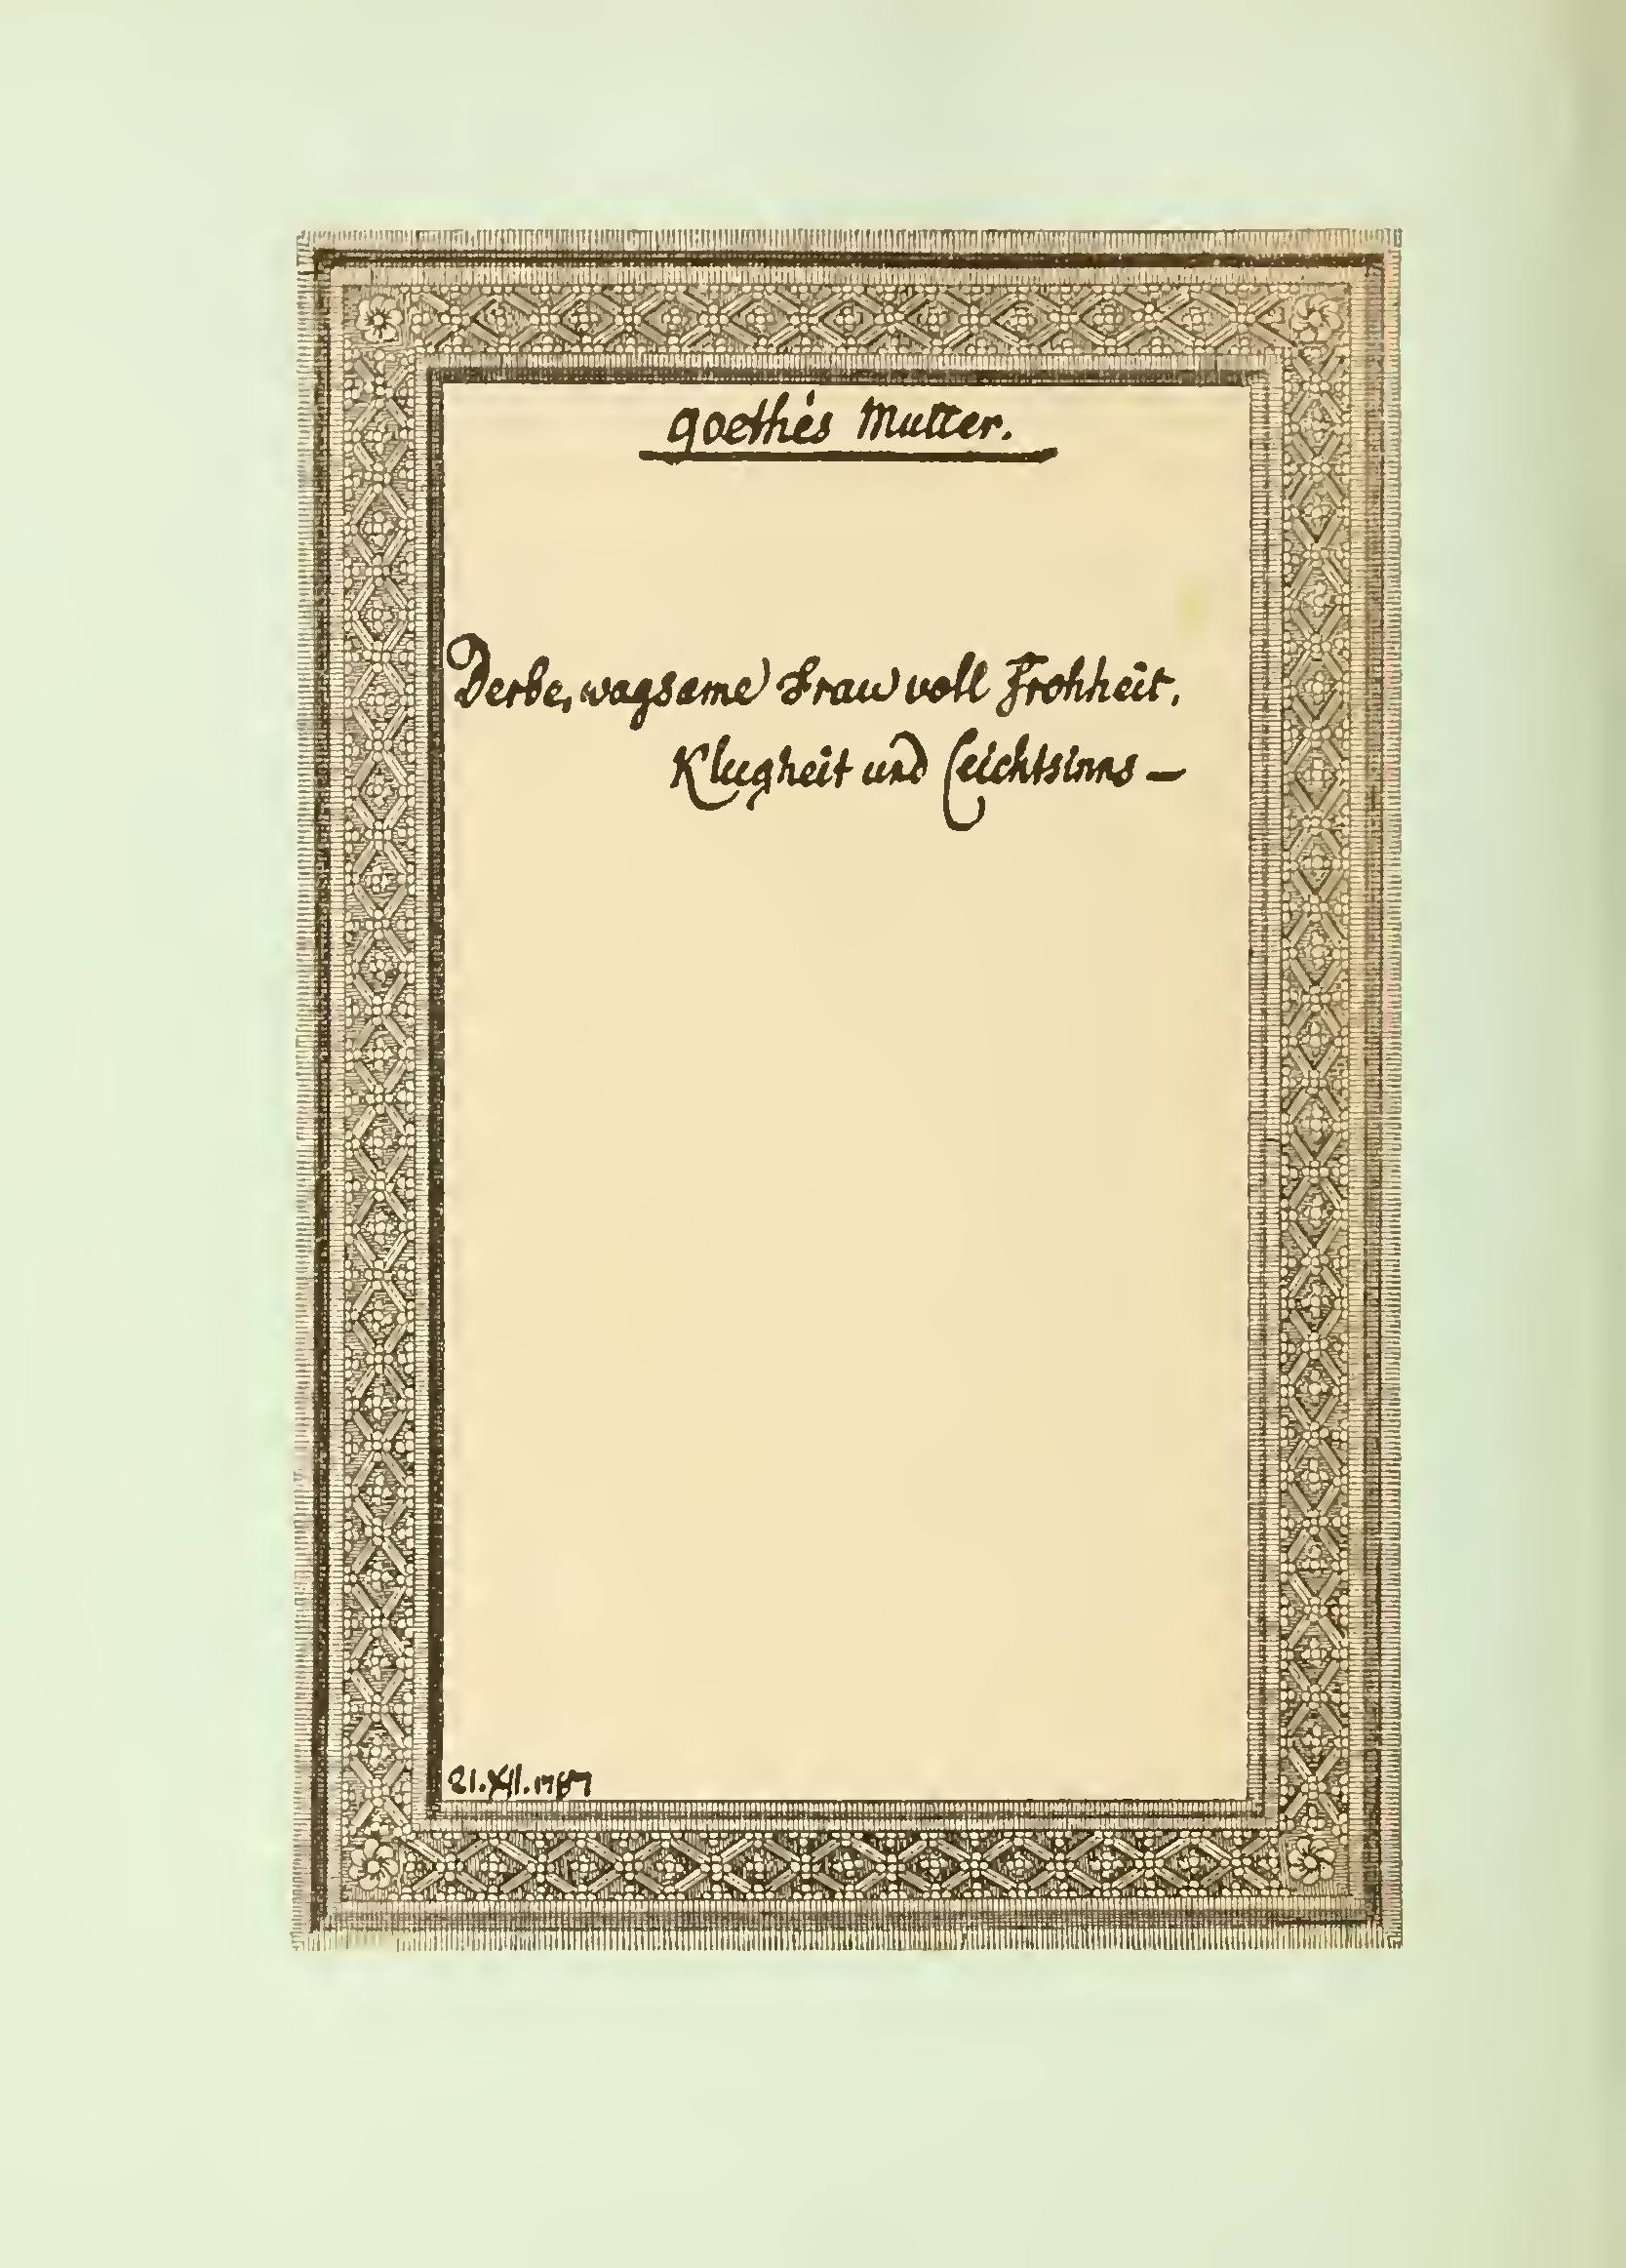 Goethe's Mutter.
Derbe, wagsame Frau voll Frohheit,
Klugheit und Leichtsinns —
21.XII.1787